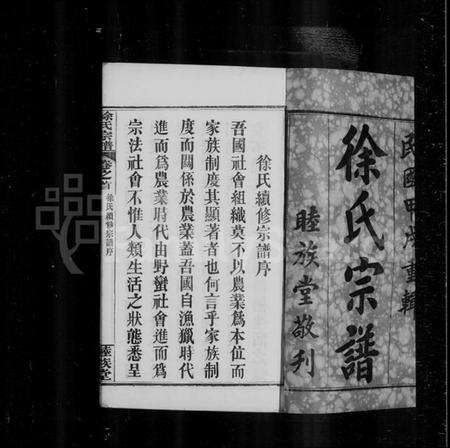 民國甲戌重輯
徐氏宗譜
睦族堂敬刋
徐氏續修宗譜序
吾國社會組織莫不以農業爲本位而
家族制度其顯著者也何言乎家族制
度而關係於農業蓋吾國自漁獵時代
進而爲農業時代由野蠻社會進而爲
宗法社會不惟人類生活之狀態悉呈
徐氏宗譜
卷之首
徐氏續修宗譜序
睦族堂